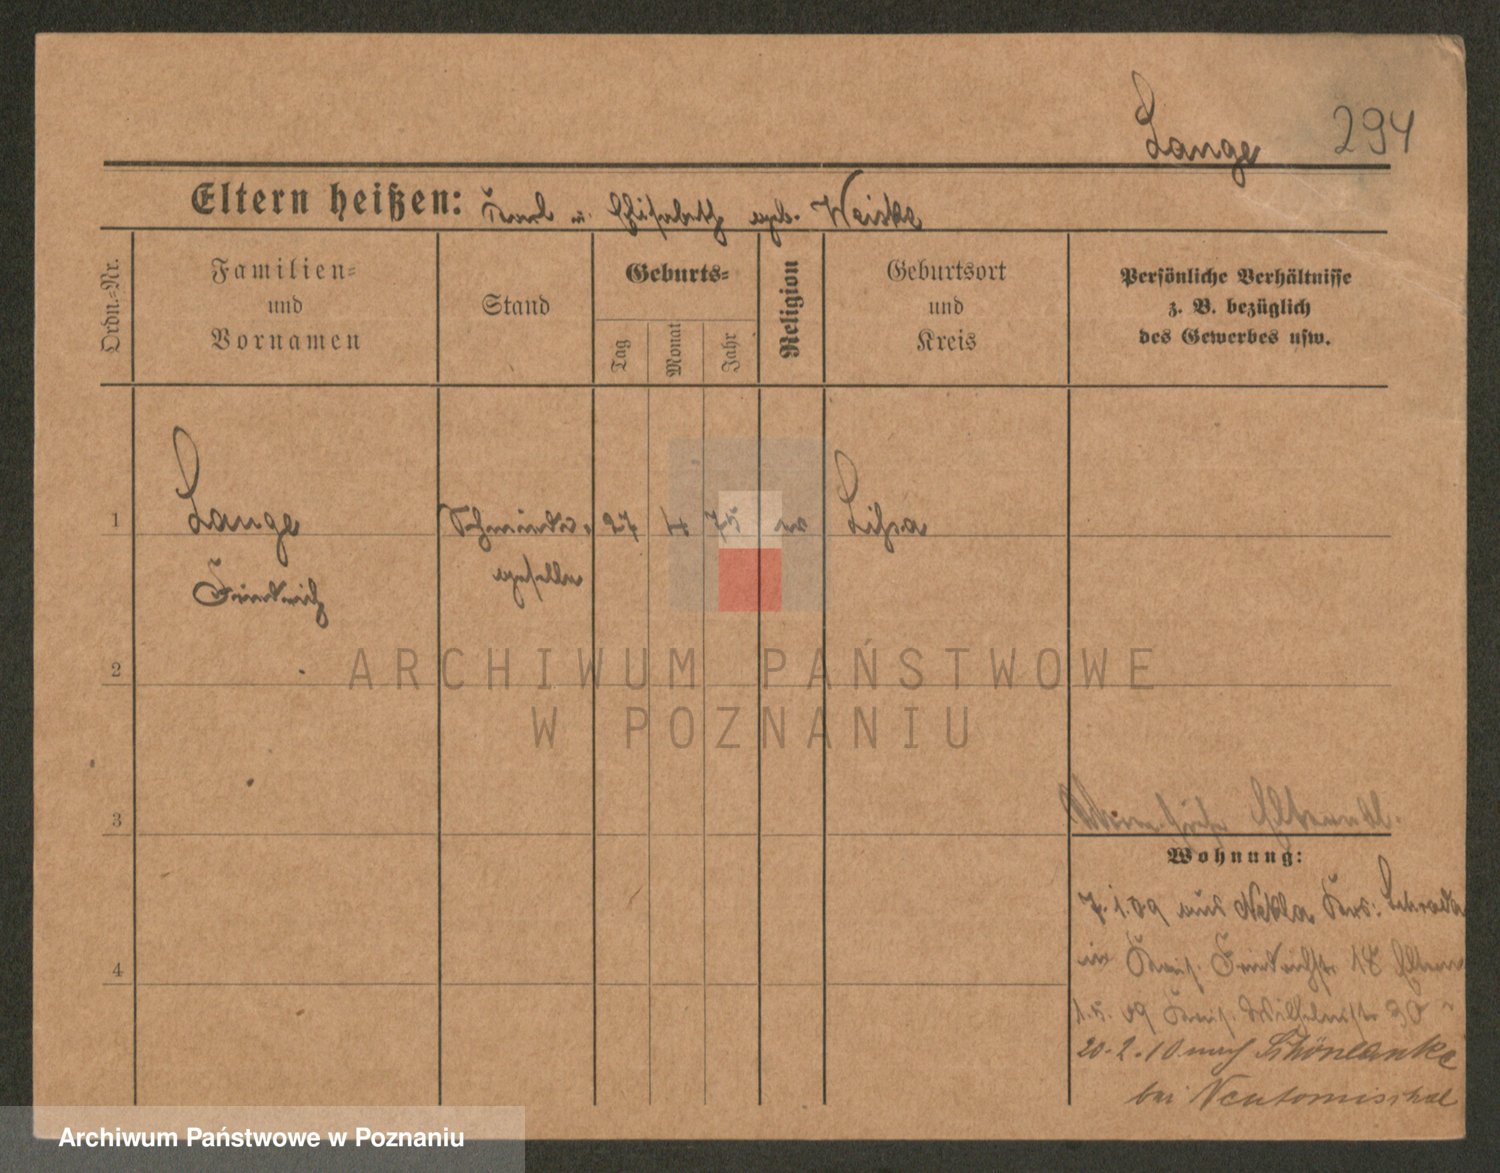 Lange 294
Eltern heißen: Karl u. Elisabeth geb. Weiske
Ordn.=Nr.
Familien=
und
Vornamen
Stand
Geburts=
Tag
Monat
Jahr
Religion
Geburtsort
und
Kreis
Persönliche Verhältnisse
z. B. bezüglich
des Gewerbes usw.
1 Lange Schmiede- 27 4 75 ev Lissa
Friedrich geselle
2
3
Wohnung:
7.1.09 aus Nekla Krs: Schroda
in Friedrichstr 18 Eltern
4
1.5.09 Wilhelmstr 30
20.2.10 nach Schönlanke
bei Neutomischel
ARCHIWUM PAŃSTWOWE
W POZNANIU
Archiwum Państwowe w Poznaniu